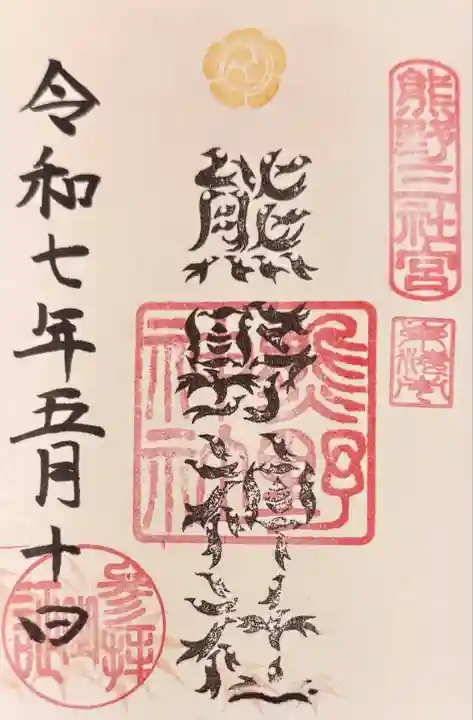 熊野三社宮
熊野神社
熊野
神社
令和七年五月十日
参拝
証